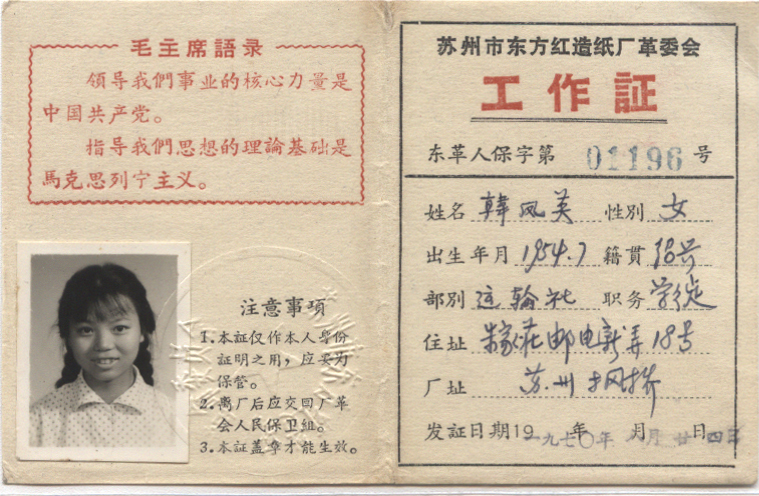 毛主席語录
領导我們事业的核心力量是
中国共产党。
指导我們思想的理論基础是
馬克思列宁主义。
注意事項
1.本証仅作本人身份
証明之用，应妥为
保管。
2.离厂后应交回厂革
会人民保卫組。
3.本証盖章才能生效。
苏州市东方红造纸厂革委会
工作証
东革人保字第 01196 号
姓名 韓凤英 性別 女
出生年月 1954.7 籍貫 绍兴
部別 运输社 职务 学徒
住址 朱家庄邮电新弄18号
厂址 苏州 枫桥
发証日期19 一九七〇年 年 月廿四日